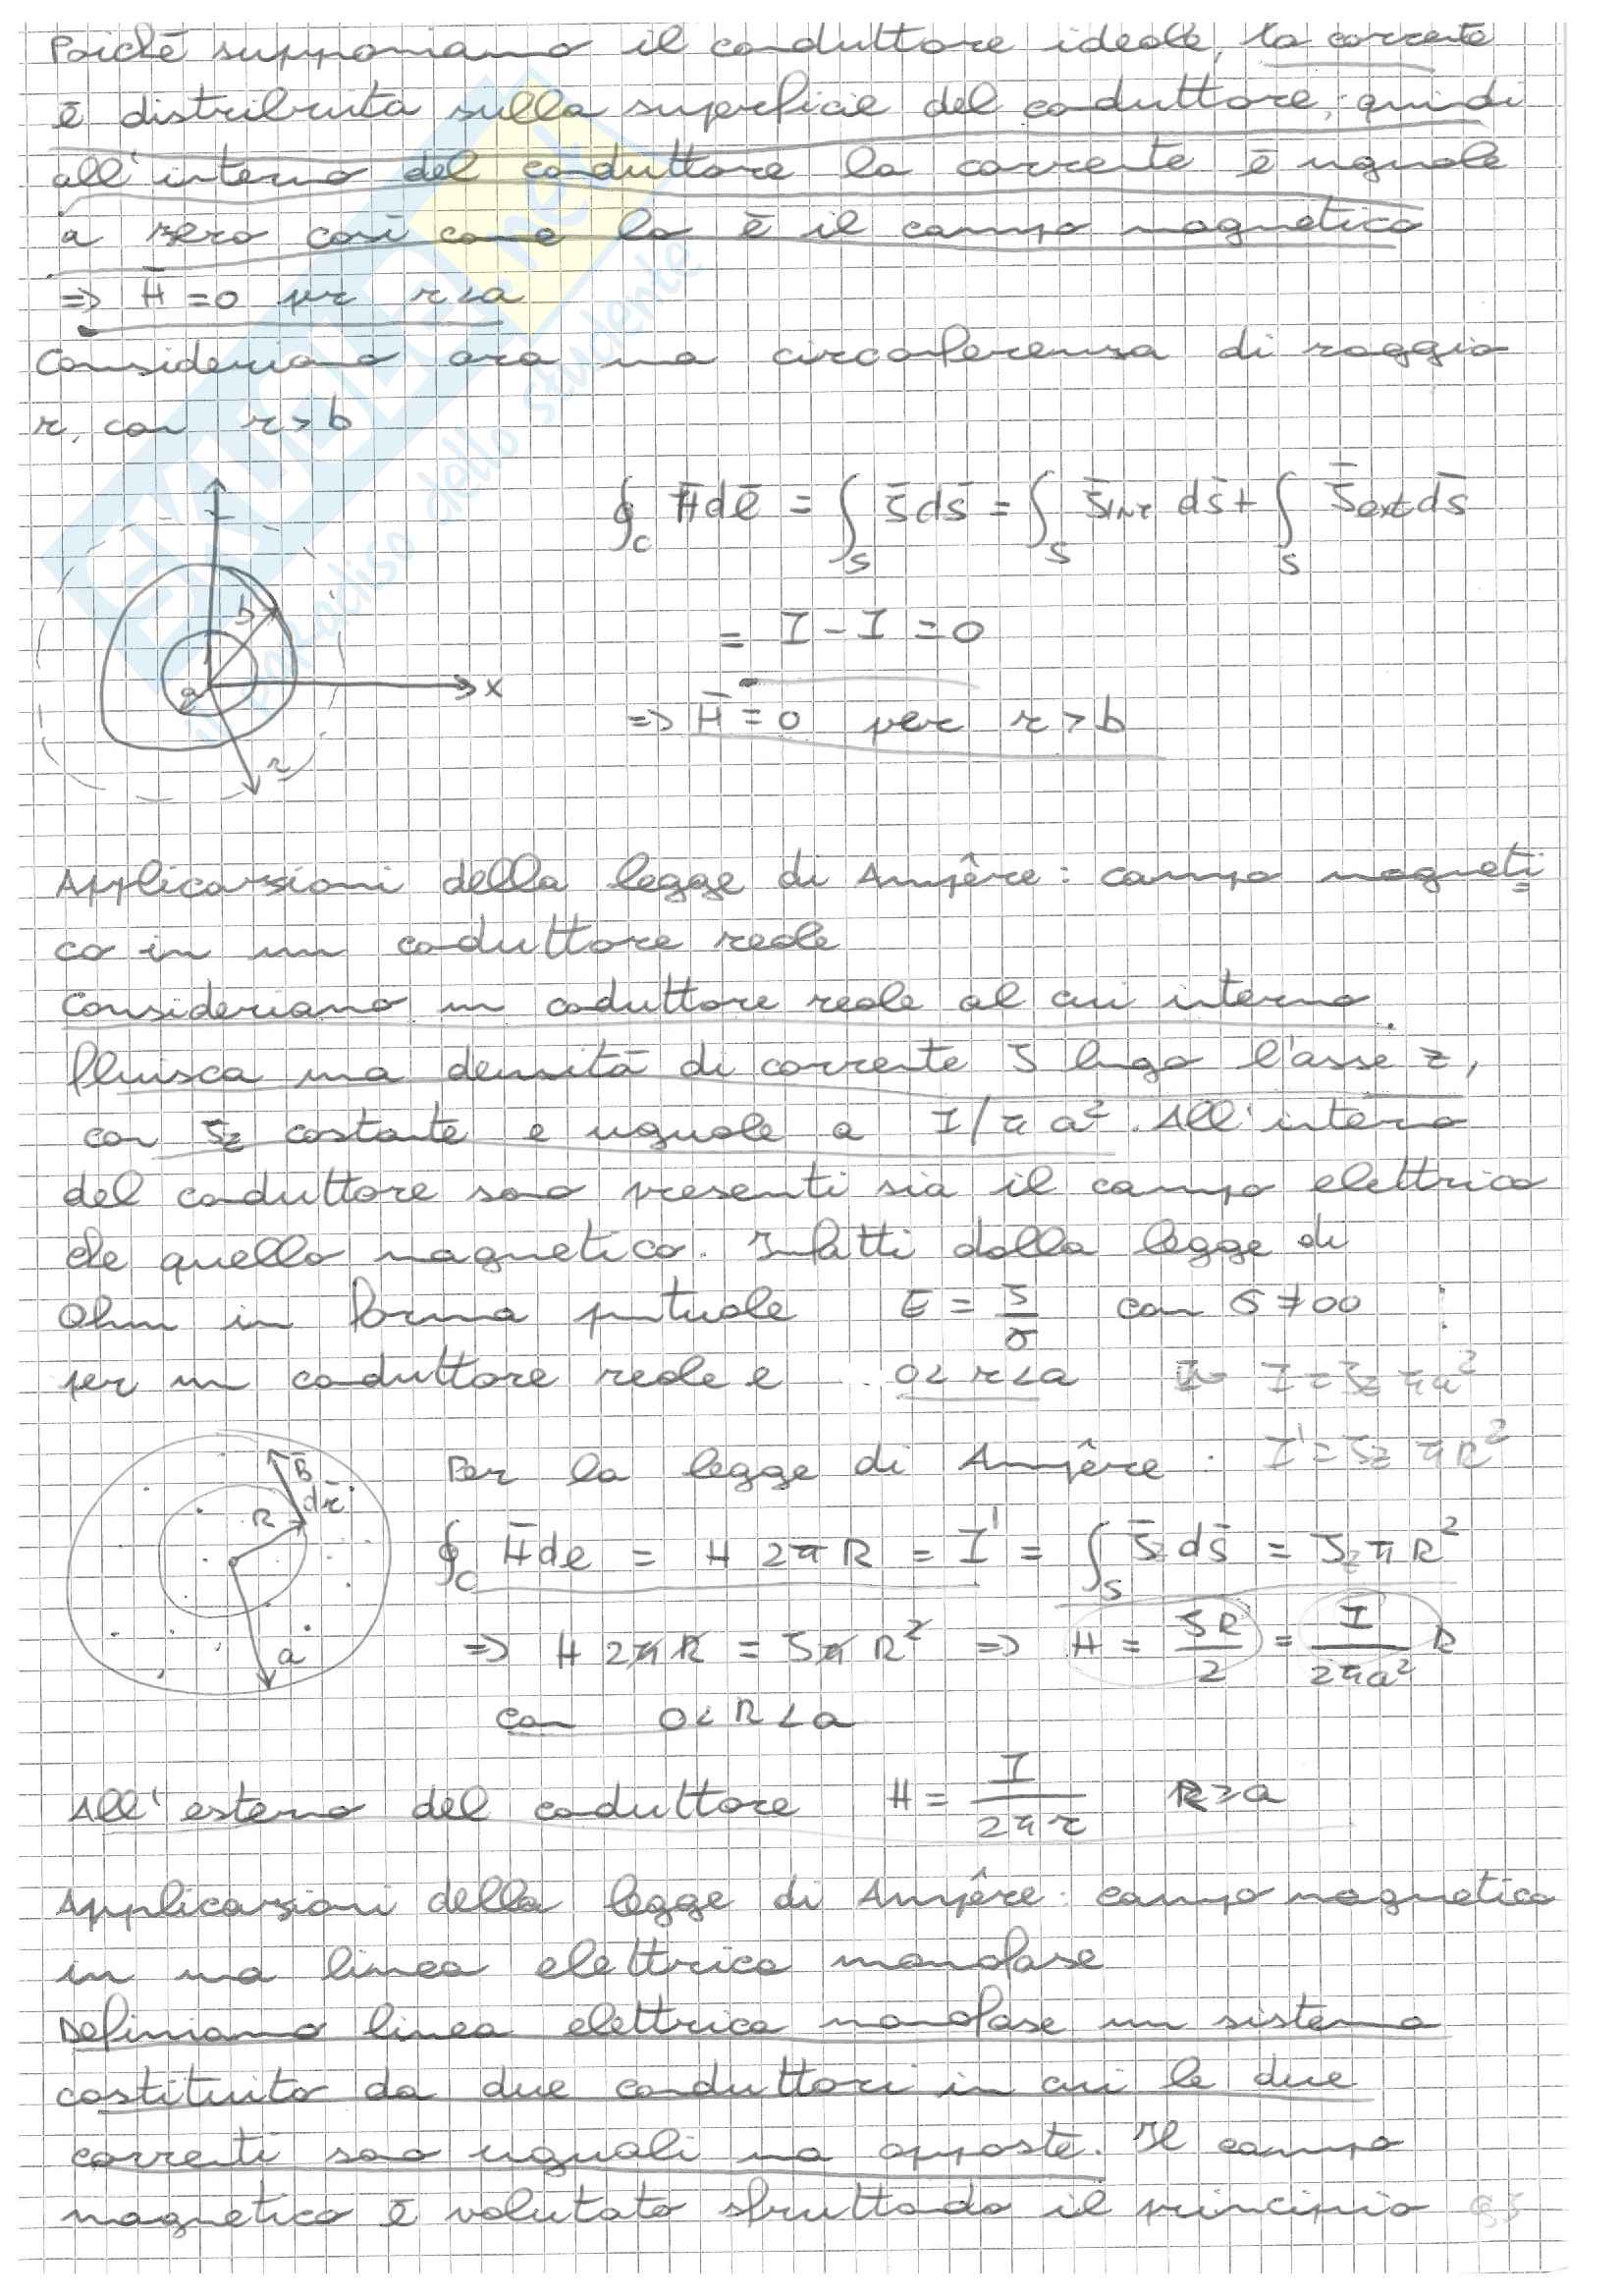 Poiché supponiamo il conduttore ideale, la corrente
è distribuita sulla superficie del conduttore; quindi
all'interno del conduttore la corrente è uguale
a zero così come lo è il campo magnetico
=> H̄ = 0 per r < a
Consideriamo ora una circonferenza di raggio
r, con r > b
∮c H̄ dl̄ = ∫s J̄ ds̄ = ∫s J̄int ds̄ + ∫s J̄ext ds̄
= I - I = 0
=> H̄ = 0 per r > b
b
a
x
r
Applicazioni della legge di Ampêre: campo magneti
co in un conduttore reale
Consideriamo un conduttore reale al cui interno
fluisca una densità di corrente J lungo l'asse z,
con Jz costante e uguale a I/πa². All'interno
del conduttore sono presenti sia il campo elettrico
che quello magnetico. Infatti dalla legge di
Ohm in forma puntuale E = J/σ con σ ≠ ∞ :
per un conduttore reale e 0 < r < a I = Jz πa²
Per la legge di Ampêre: I' = Jz πR²
B̄
dr̄
R
a
∮c H̄ dl = H 2πR = I' = ∫s J̄ ds̄ = Jz πR²
=> H 2πR = JπR² => H = JR/2 = I/2πa² R
con 0 < R < a
All'esterno del conduttore H = I/2πr R ≥ a
Applicazioni della legge di Ampêre: campo magnetico
in una linea elettrica monofase
Definiamo linea elettrica monofase un sistema
costituito da due conduttori in cui le due
correnti sono uguali ma opposte. Il campo
magnetico è valutato sfruttando il principio
dello studente